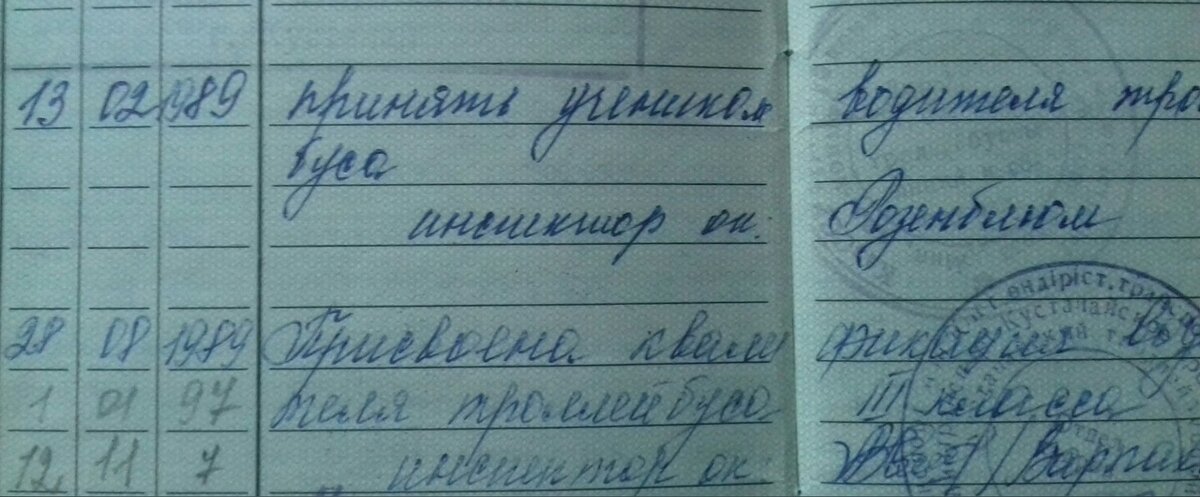 13 02 1989 принять учеником водителя тро
буса
инспектор ок: Розенблюм
28 08 1989 Присвоена квали фикация Вод
1 01 97 теля троллейбуса III класса
12 11 7 инспектор ок:
ендіріст.
Кустанайско